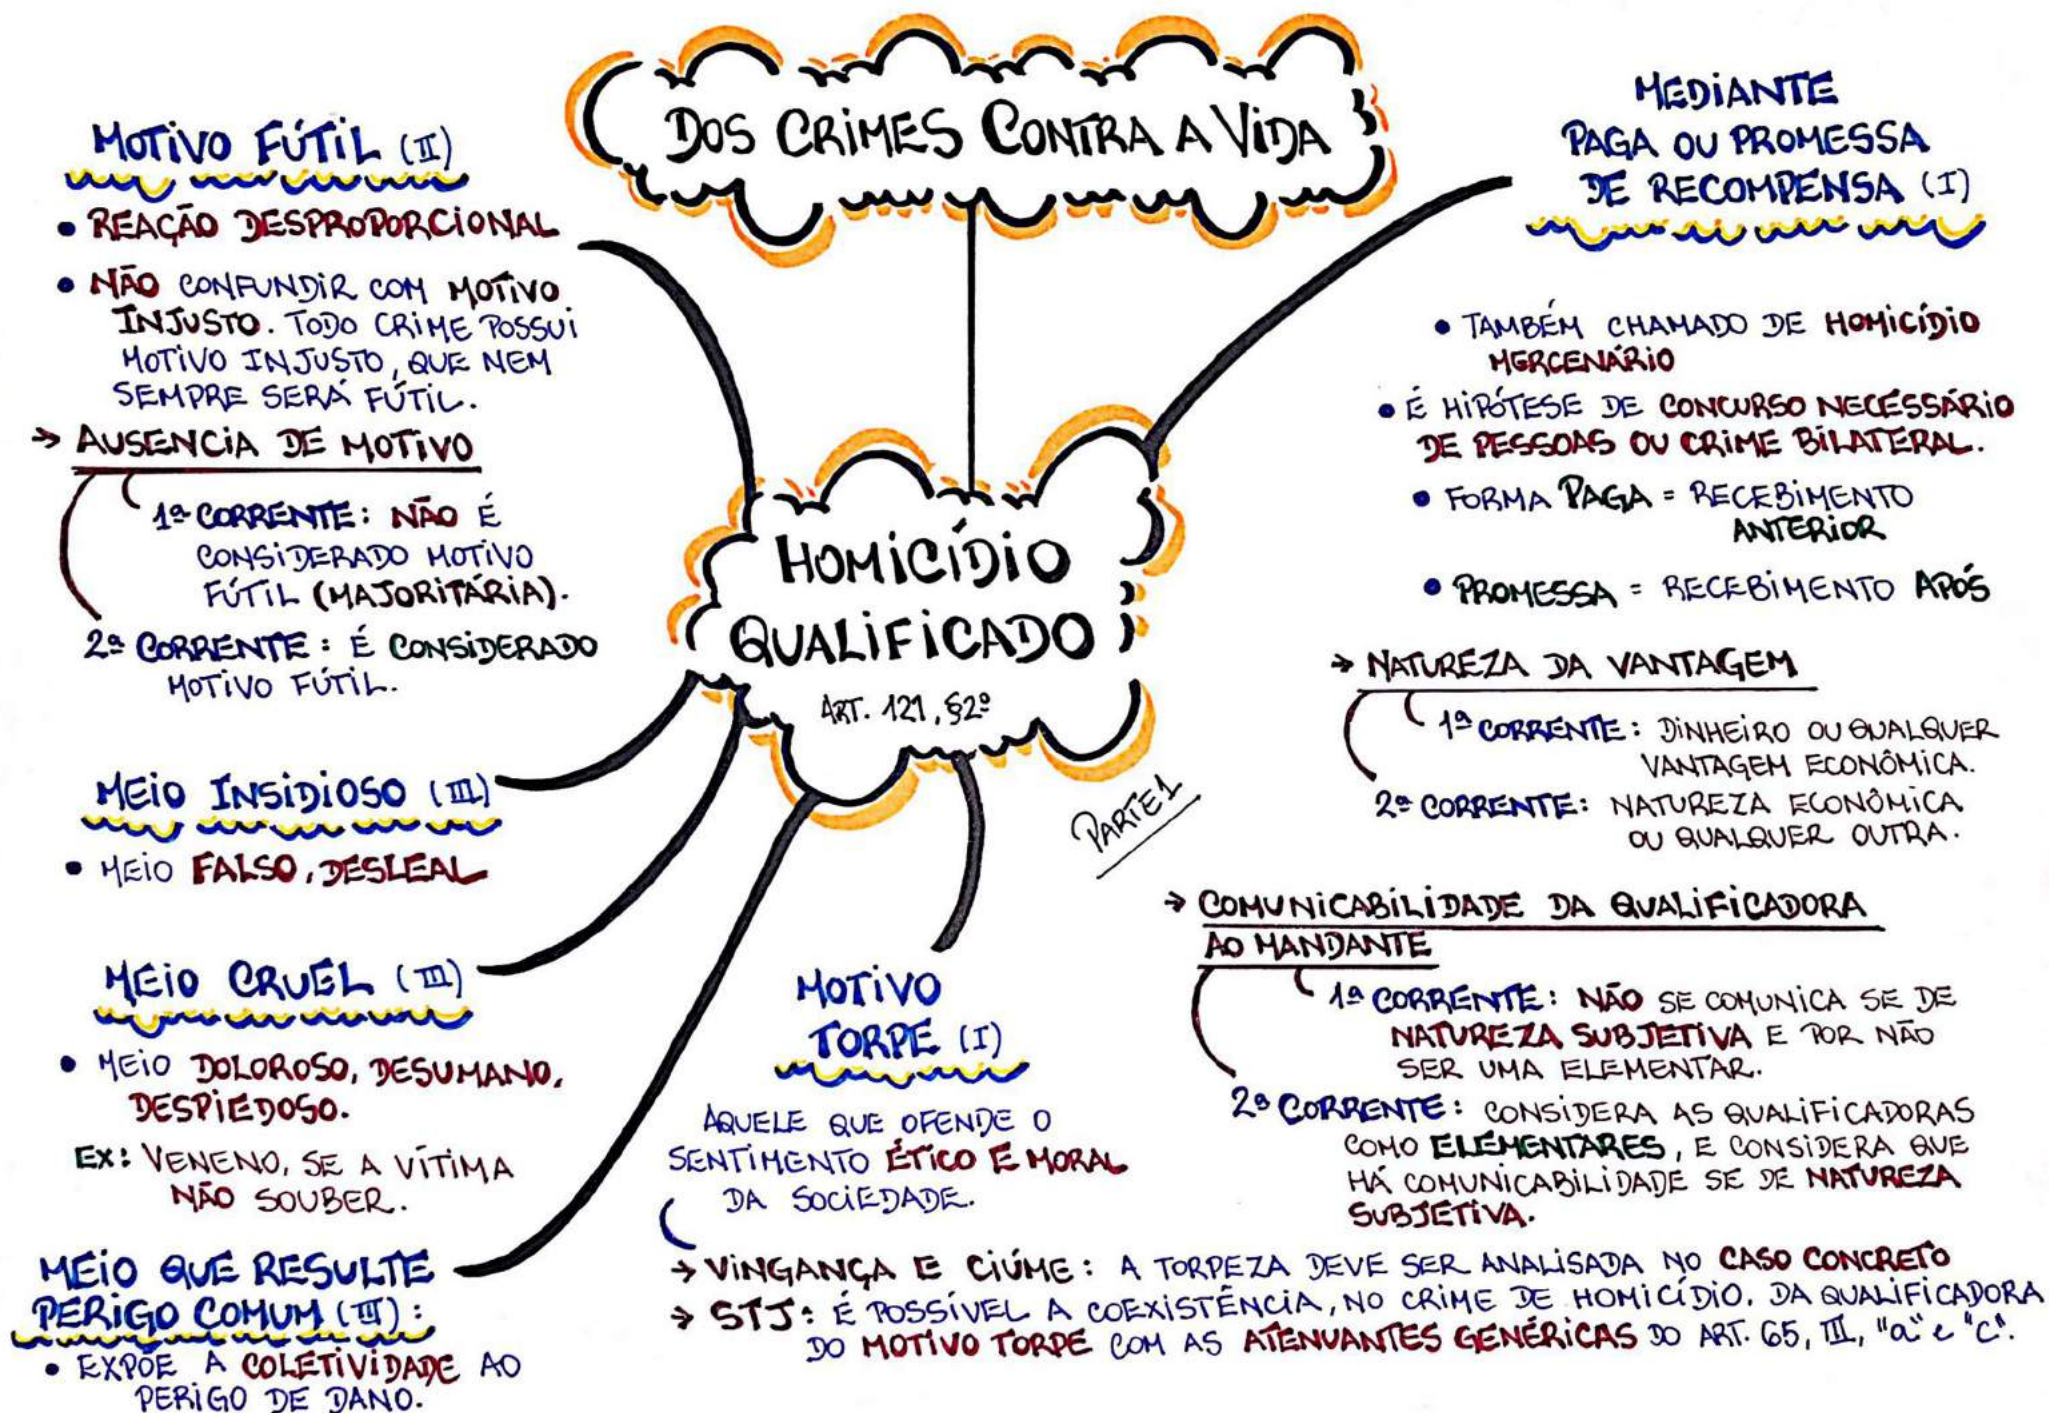 DOS CRIMES CONTRA A VIDA
HOMICÍDIO
QUALIFICADO
ART. 121, §2º
PARTE 1
MOTIVO FÚTIL (II)
• REAÇÃO DESPROPORCIONAL
• NÃO CONFUNDIR COM MOTIVO
INJUSTO. TODO CRIME POSSUI
MOTIVO INJUSTO, QUE NEM
SEMPRE SERÁ FÚTIL.
→ AUSENCIA DE MOTIVO
1ª CORRENTE: NÃO É
CONSIDERADO MOTIVO
FÚTIL (MAJORITÁRIA).
2ª CORRENTE: É CONSIDERADO
MOTIVO FÚTIL.
MEIO INSIDIOSO (III)
• MEIO FALSO, DESLEAL
MEIO CRUEL (III)
• MEIO DOLOROSO, DESUMANO,
DESPIEDOSO.
EX: VENENO, SE A VÍTIMA
NÃO SOUBER.
MEIO QUE RESULTE
PERIGO COMUM (III):
• EXPÕE A COLETIVIDADE AO
PERIGO DE DANO.
MOTIVO
TORPE (I)
AQUELE QUE OFENDE O
SENTIMENTO ÉTICO E MORAL
DA SOCIEDADE.
→ VINGANÇA E CIÚME: A TORPEZA DEVE SER ANALISADA NO CASO CONCRETO
→ STJ: É POSSÍVEL A COEXISTÊNCIA, NO CRIME DE HOMICÍDIO, DA QUALIFICADORA
DO MOTIVO TORPE COM AS ATENUANTES GENÉRICAS DO ART. 65, III, "a" e "c".
MEDIANTE
PAGA OU PROMESSA
DE RECOMPENSA (I)
• TAMBÉM CHAMADO DE HOMICÍDIO
MERCENÁRIO
• É HIPÓTESE DE CONCURSO NECESSÁRIO
DE PESSOAS OU CRIME BILATERAL.
• FORMA PAGA = RECEBIMENTO
ANTERIOR
• PROMESSA = RECEBIMENTO APÓS
→ NATUREZA DA VANTAGEM
1ª CORRENTE: DINHEIRO OU QUALQUER
VANTAGEM ECONÔMICA.
2ª CORRENTE: NATUREZA ECONÔMICA
OU QUALQUER OUTRA.
→ COMUNICABILIDADE DA QUALIFICADORA
AO MANDANTE
1ª CORRENTE: NÃO SE COMUNICA SE DE
NATUREZA SUBJETIVA E POR NÃO
SER UMA ELEMENTAR.
2ª CORRENTE: CONSIDERA AS QUALIFICADORAS
COMO ELEMENTARES, E CONSIDERA QUE
HÁ COMUNICABILIDADE SE DE NATUREZA
SUBJETIVA.